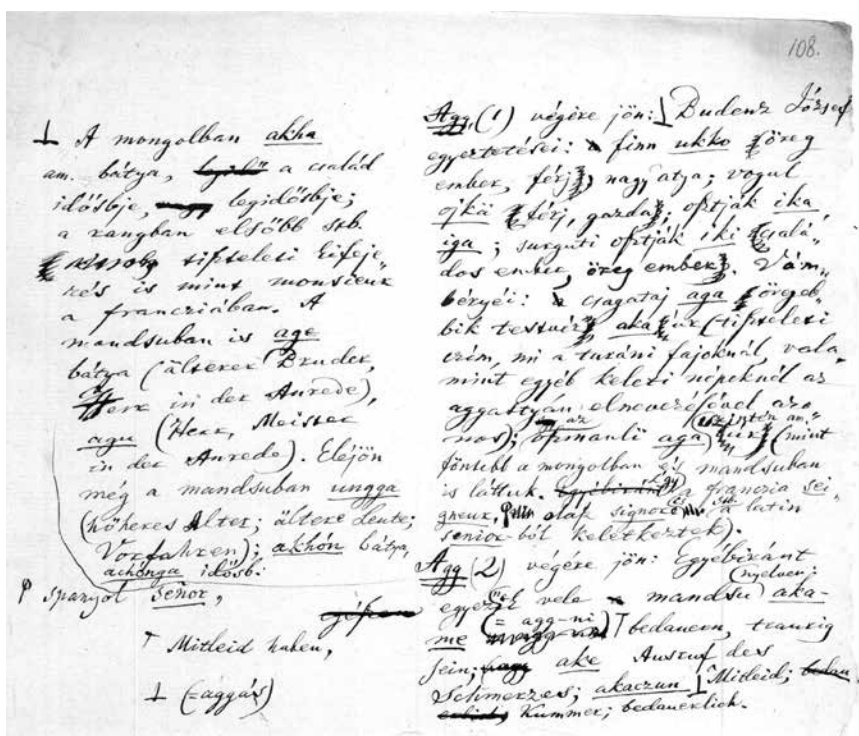 108.
⊥ A mongolban akha
am. bátya, a család
idősbje, legidősbje;
a rangban elsőbb stb.
tiszteleti kifeje-
zés is mint monsieur
a francziában. A
mandsuban is age
bátya (älterer Bruder,
Herr in der Anrede),
agu (Herr, Meister
in der Anrede). Eléjön
még a mandsuban ungga
(höheres Alter; ältere Leute;
Vorfahren); akhón bátya,
achónga idősb.
spanyol señor,
Mitleid haben,
⊥ (=aggás)
Agg, (1) végére jön: ⊥ Budenz József
egyeztetései: finn ukko öreg
ember, férj, nagyatya; vogul
ojkä férj, gazda; osztják ika
iga; surguti osztják iki csalá-
dos ember, öreg ember. Vám-
béryéi: csagataj aga öregeb-
bik testvér, aka úr (tiszteleti
czím, mi a turáni fajoknál, vala-
mint egyéb keleti népeknél az
aggastyán elnevezésével azo-
nos); az oszmanli aga (szintén am.
úr) (mint
föntebb a mongolban és mandsuban
is láttuk. Egyébiránt Így a franczia sei-
gneur, olasz signore stb. a latin
senior-ból keletkeztek).
Agg (2) végére jön: Egyébiránt
egyezik vele a mandsu nyelven: aka-
me (= agg-ni) bedauern, traurig
sein; ake Ausruf des
Schmerzes; akaczun ⊥ Mitleid;
Kummer; bedauerlich.